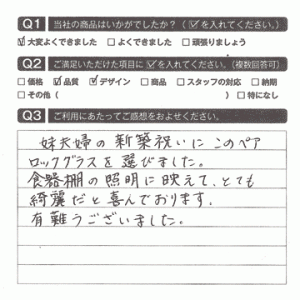 Q1 当社の商品はいかがでしたか?(☑を入れてください。)
☑大変よくできました □よくできました □頑張りましょう
Q2 ご満足いただけた項目に☑を入れてください。(複数回答可)
□価格 ☑品質 ☑デザイン □商品 □スタッフの対応 □納期
□その他( ) □特になし
Q3 ご利用にあたってご感想をおよせください。
妹夫婦の新築祝いにこのペア
ロックグラスを選びました。
食器棚の照明に映えて、とても
綺麗だと喜んでおります。
有難うございました。